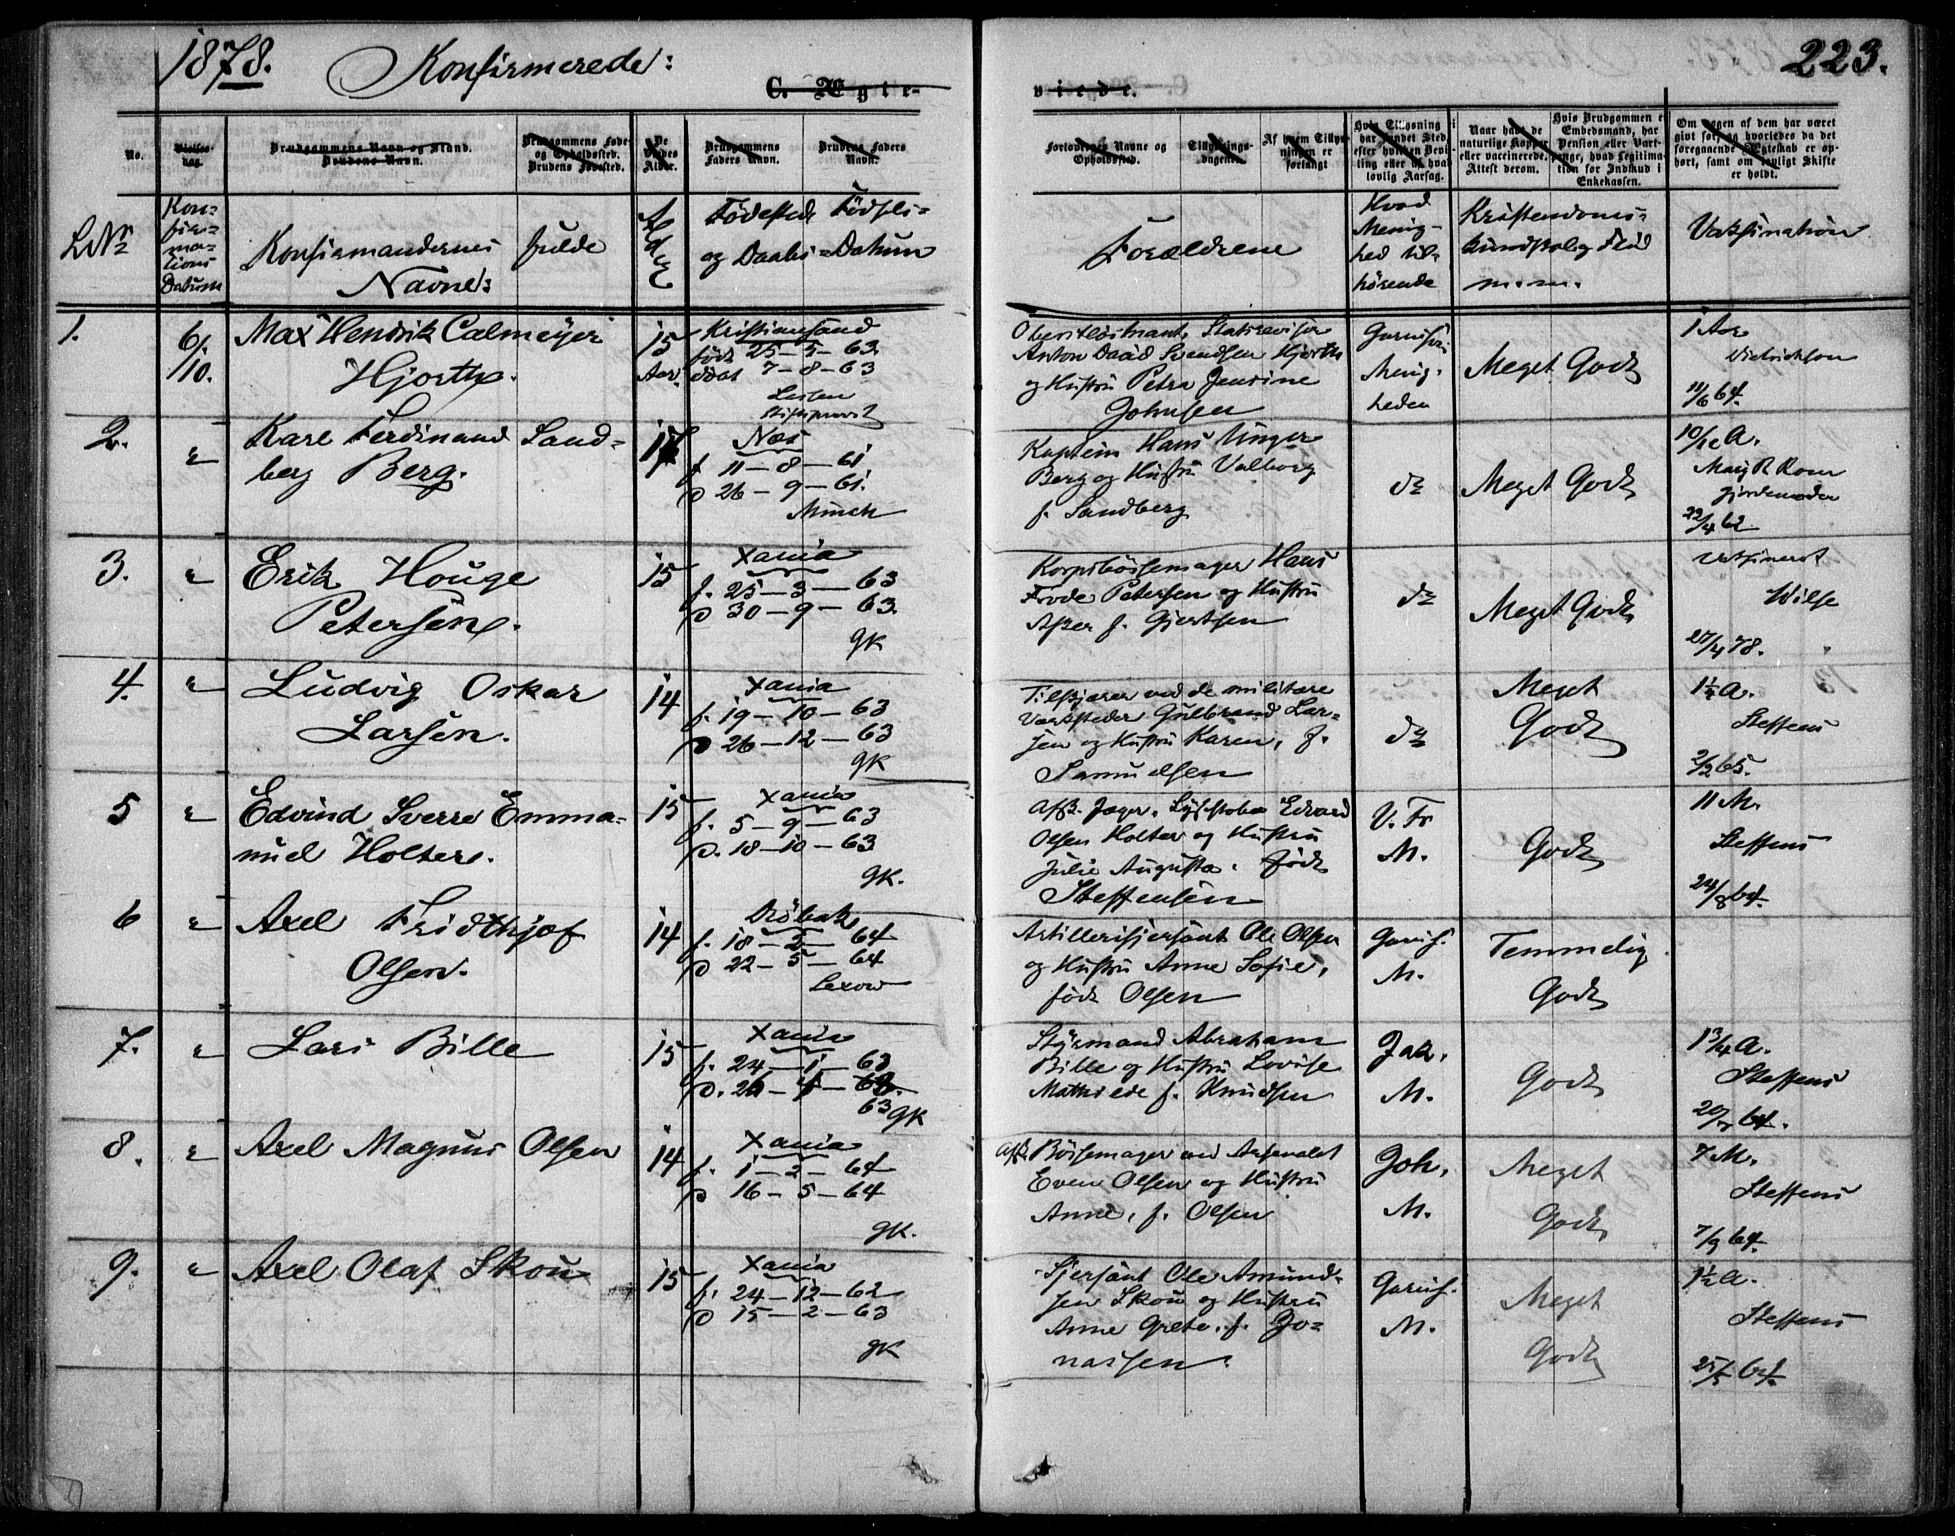 1878. Konfirmerede: 223.
C. Ægte- viede.
No.
Vielses-dag.
Brudgommens Navn og Stand. Brudens Navn.
Brudgommens Føde- og Opholdssted. Brudens Fødested.
De Viedes Alder.
Brudgommens Faders Navn.
Brudens Faders Navn.
Forlovernes Navne og Opholdssted.
Tillysnings-dagene.
Af hvem Tillysningen er forlangt
Hvis Tillysning ei har fundet Sted, efter hvilken Bevilling eller af hvad lovlig Aarsag.
Naar havt de naturlige Kopper eller vaccinerede. Attest derom.
Hvis Brudgommen er Embedsmand, har Pension eller Vartpenge, hvad Legitimation for Indskud i Enkekassen.
Om nogen af dem har været gift før, og hvorledes da det foregaaende Ægteskab er ophørt, samt om lovligt Skifte er holdt.
LNr
Konfirmations Datum
Konfirmandernes fulde Navne:
Alder
Fødested Fødsels- og Daabs-Datum
Forældrene
Hvad Menighed tilhørende
Kristendomskundskab og Flid m.m.
Vaksination
1.
6/10.
Max Hendrik Calmeyer
Hjorth.
15 Aar
Kristianssand
født 25-5-63.
døbt 7-8-63
Stiftsprovst
Oberstløitnant, Statsrevisor
Anton David Svendsen Hjorth
og Hustru Petra Jensine
Johnsen
Garnisons Menigheden
Meget Godt
1 Aar
11/6 64.
2.
"
Karl Ferdinand Sand-
berg Berg.
17
Næs
f. 11-8-61
D 26-9-61.
Munch
Kaptein Hans Unger
Berg og Hustru Valborg
f. Sandberg
do
Meget Godt
10/12 A.
Gjordemoder
22/4 62
3.
"
Erik Houge
Petersen.
15
Xania
f. 25-3-63
D 30-9-63.
GK
Korpsbøssemager Hans
Frode Petersen og Hustru
f. Gjertsen
do
Meget Godt
Vaksineret
Wilse
27/4 78.
4.
"
Ludvig Oskar
Larsen.
14
Xania
f. 19-10-63
D 26-12-63
GK
Tilskjærer ved de militære
Værksteder Gulbrand Lar-
sen og Hustru Karen, f.
Samuelsen
do
Meget Godt
1½ A.
Steffens
2/2 65.
5
"
Edvind Sverre Emma-
nuel Holter.
15
Xania
f. 5-9-63
D. 18-10-63
GK.
Afsk. Jæger, Edvard
Olsen Holter og Hustru
Julie Augusta, født
Steffensen
V. Fr M.
Godt
11 M.
Steffens
24/8 64.
6
"
Axel Fridthjof
Olsen.
14
Drøbak
f. 18-2-64
D 22-5-64
Lexow
Artillerisjersant Ole Olsen
og Hustru Anne Sofie,
født Olsen
Garnis. M.
Temmelig Godt
7.
"
Lars Bille
15
Xania
f. 24-1-63
D. 26-4-63
GK
Styrmand Abraham
Bille og Hustru Lovise
Mathilde f. Knudsen
Jak. M.
Godt
1¾ A.
Steffens
64.
8.
"
Axel Magnus Olsen
14
Xania
f. 1-2-64
D 16-5-64
GK.
Afsk. Bøssemager ved Arsenalet
Even Olsen og Hustru
Anne, f. Olsen
Joh. M.
Meget Godt
7 M.
Steffens
7/9 64.
9.
"
Axel Olaf Skou
15
Xania
f. 24-12-62
D 15-2-63
GK
Sjersant Ole Amund-
sen Skou og Hustru
Anne Grete, f. Jo-
nassen.
Garnis. M.
Meget Godt
1½ A.
Steffens
25/5 64.